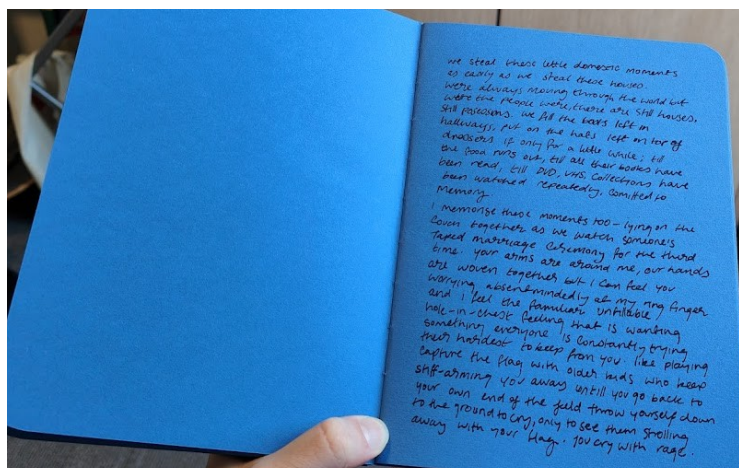 we steal these little domestic moments
as easily as we steal these houses.
were always moving through the world but
were the people were, there are still houses,
still possesions. we fill the boots left in
hallways, put on the hats left on top of
dressers if only for a little while; till
the food runs out, till all their books have
been read, till DVD, VHS, Collections have
been watched repeatedly, comitted to
memory
I memorise those moments too - lying on the
couch together as we watch someone's
taped marriage ceremony for the third
time. your arms are around me, our hands
are woven together but i can feel you
worrying absentmindedly at my ring finger
and i feel the familiar unfillable
hole-in-chest feeling that is wanting
something everyone is constantly trying
their hardest to keep from you. like playing
capture the flag with older kids who keep
stiff-arming you away untill you go back to
your own end of the field throw yourself down
to the ground to cry, only to see them strolling
away with your flag. you cry with rage.